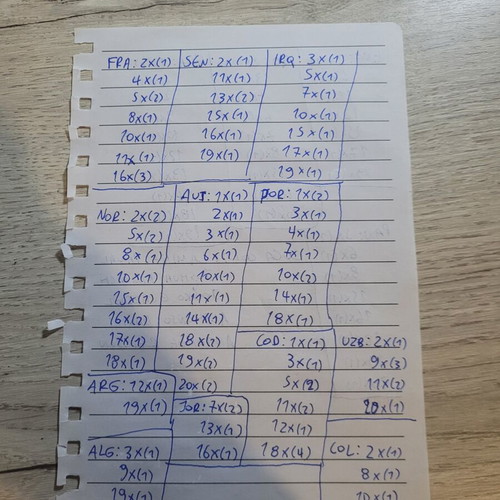 FRA: 2x(1)
4x(1)
5x(2)
8x(1)
10x(1)
11x(1)
16x(3)
SEN: 2x(1)
11x(1)
13x(2)
15x(1)
16x(1)
19x(1)
IRQ: 3x(1)
5x(1)
7x(1)
10x(1)
15x(1)
17x(1)
19x(1)
NOR: 2x(2)
5x(2)
8x(1)
10x(1)
15x(1)
16x(2)
17x(1)
18x(1)
AUT: 1x(1)
2x(1)
3x(1)
6x(1)
10x(1)
11x(1)
14x(1)
18x(2)
19x(2)
20x(2)
POR: 1x(2)
3x(1)
4x(1)
7x(1)
10x(2)
14x(1)
18x(1)
COD: 1x(1)
3x(1)
5x(2)
11x(2)
12x(1)
18x(4)
UZB: 2x(1)
9x(3)
11x(2)
20x(1)
ARG: 12x(1)
19x(1)
JOR: 7x(2)
13x(1)
16x(1)
ALG: 3x(1)
9x(1)
19x(1)
COL: 2x(1)
8x(1)
10x(1)